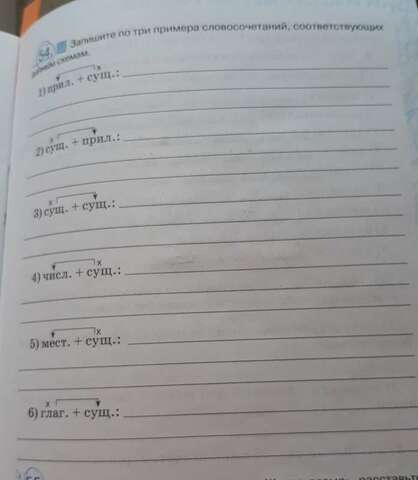 54. Запишите по три примера словосочетаний, соответствующих
данным схемам.
х
1) прил. + сущ.:
х
2) сущ. + прил.:
х
3) сущ. + сущ.:
х
4) числ. + сущ.:
х
5) мест. + сущ.:
х
6) глаг. + сущ.:
55
расставьте